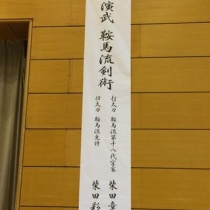 演武 鞍馬流剣術
打太刀 鞍馬流第十八代宗家 柴田章
仕太刀 鞍馬流免許 柴田